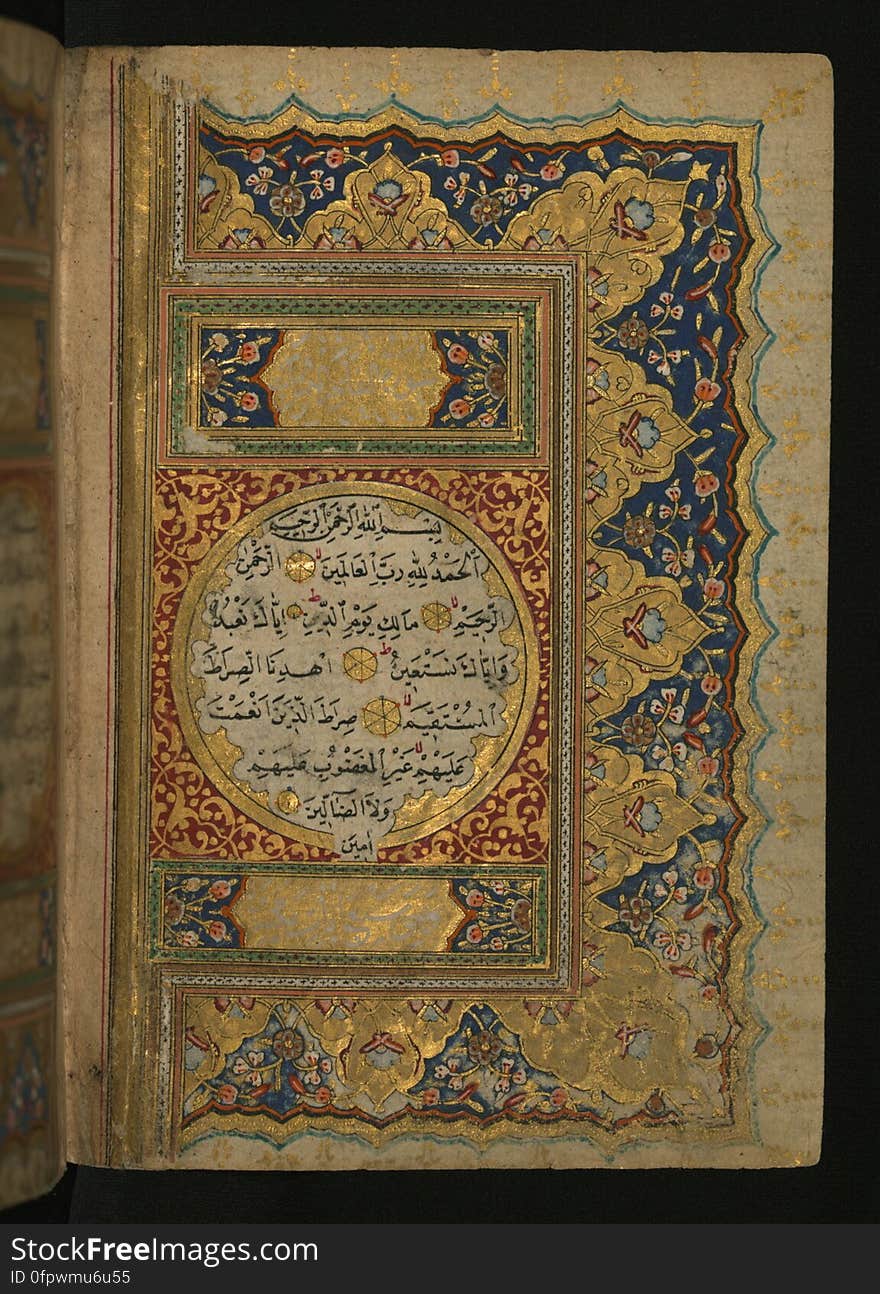 بِسْمِ اللهِ الرَّحْمٰنِ الرَّحِيمِ
اَلْحَمْدُ لِلّٰهِ رَبِّ الْعَالَمِينَ الرَّحْمٰنِ
الرَّحِيمِ مَالِكِ يَوْمِ الدِّينِ اِيَّاكَ نَعْبُدُ
وَاِيَّاكَ نَسْتَعِينُ اِهْدِنَا الصِّرَاطَ
الْمُسْتَقِيمَ صِرَاطَ الَّذِينَ اَنْعَمْتَ
عَلَيْهِمْ غَيْرِ الْمَغْضُوبِ عَلَيْهِمْ
وَلَا الضَّالِّينَ
اٰمِين
StockFreeImages.com
ID 0fpwmu6u55